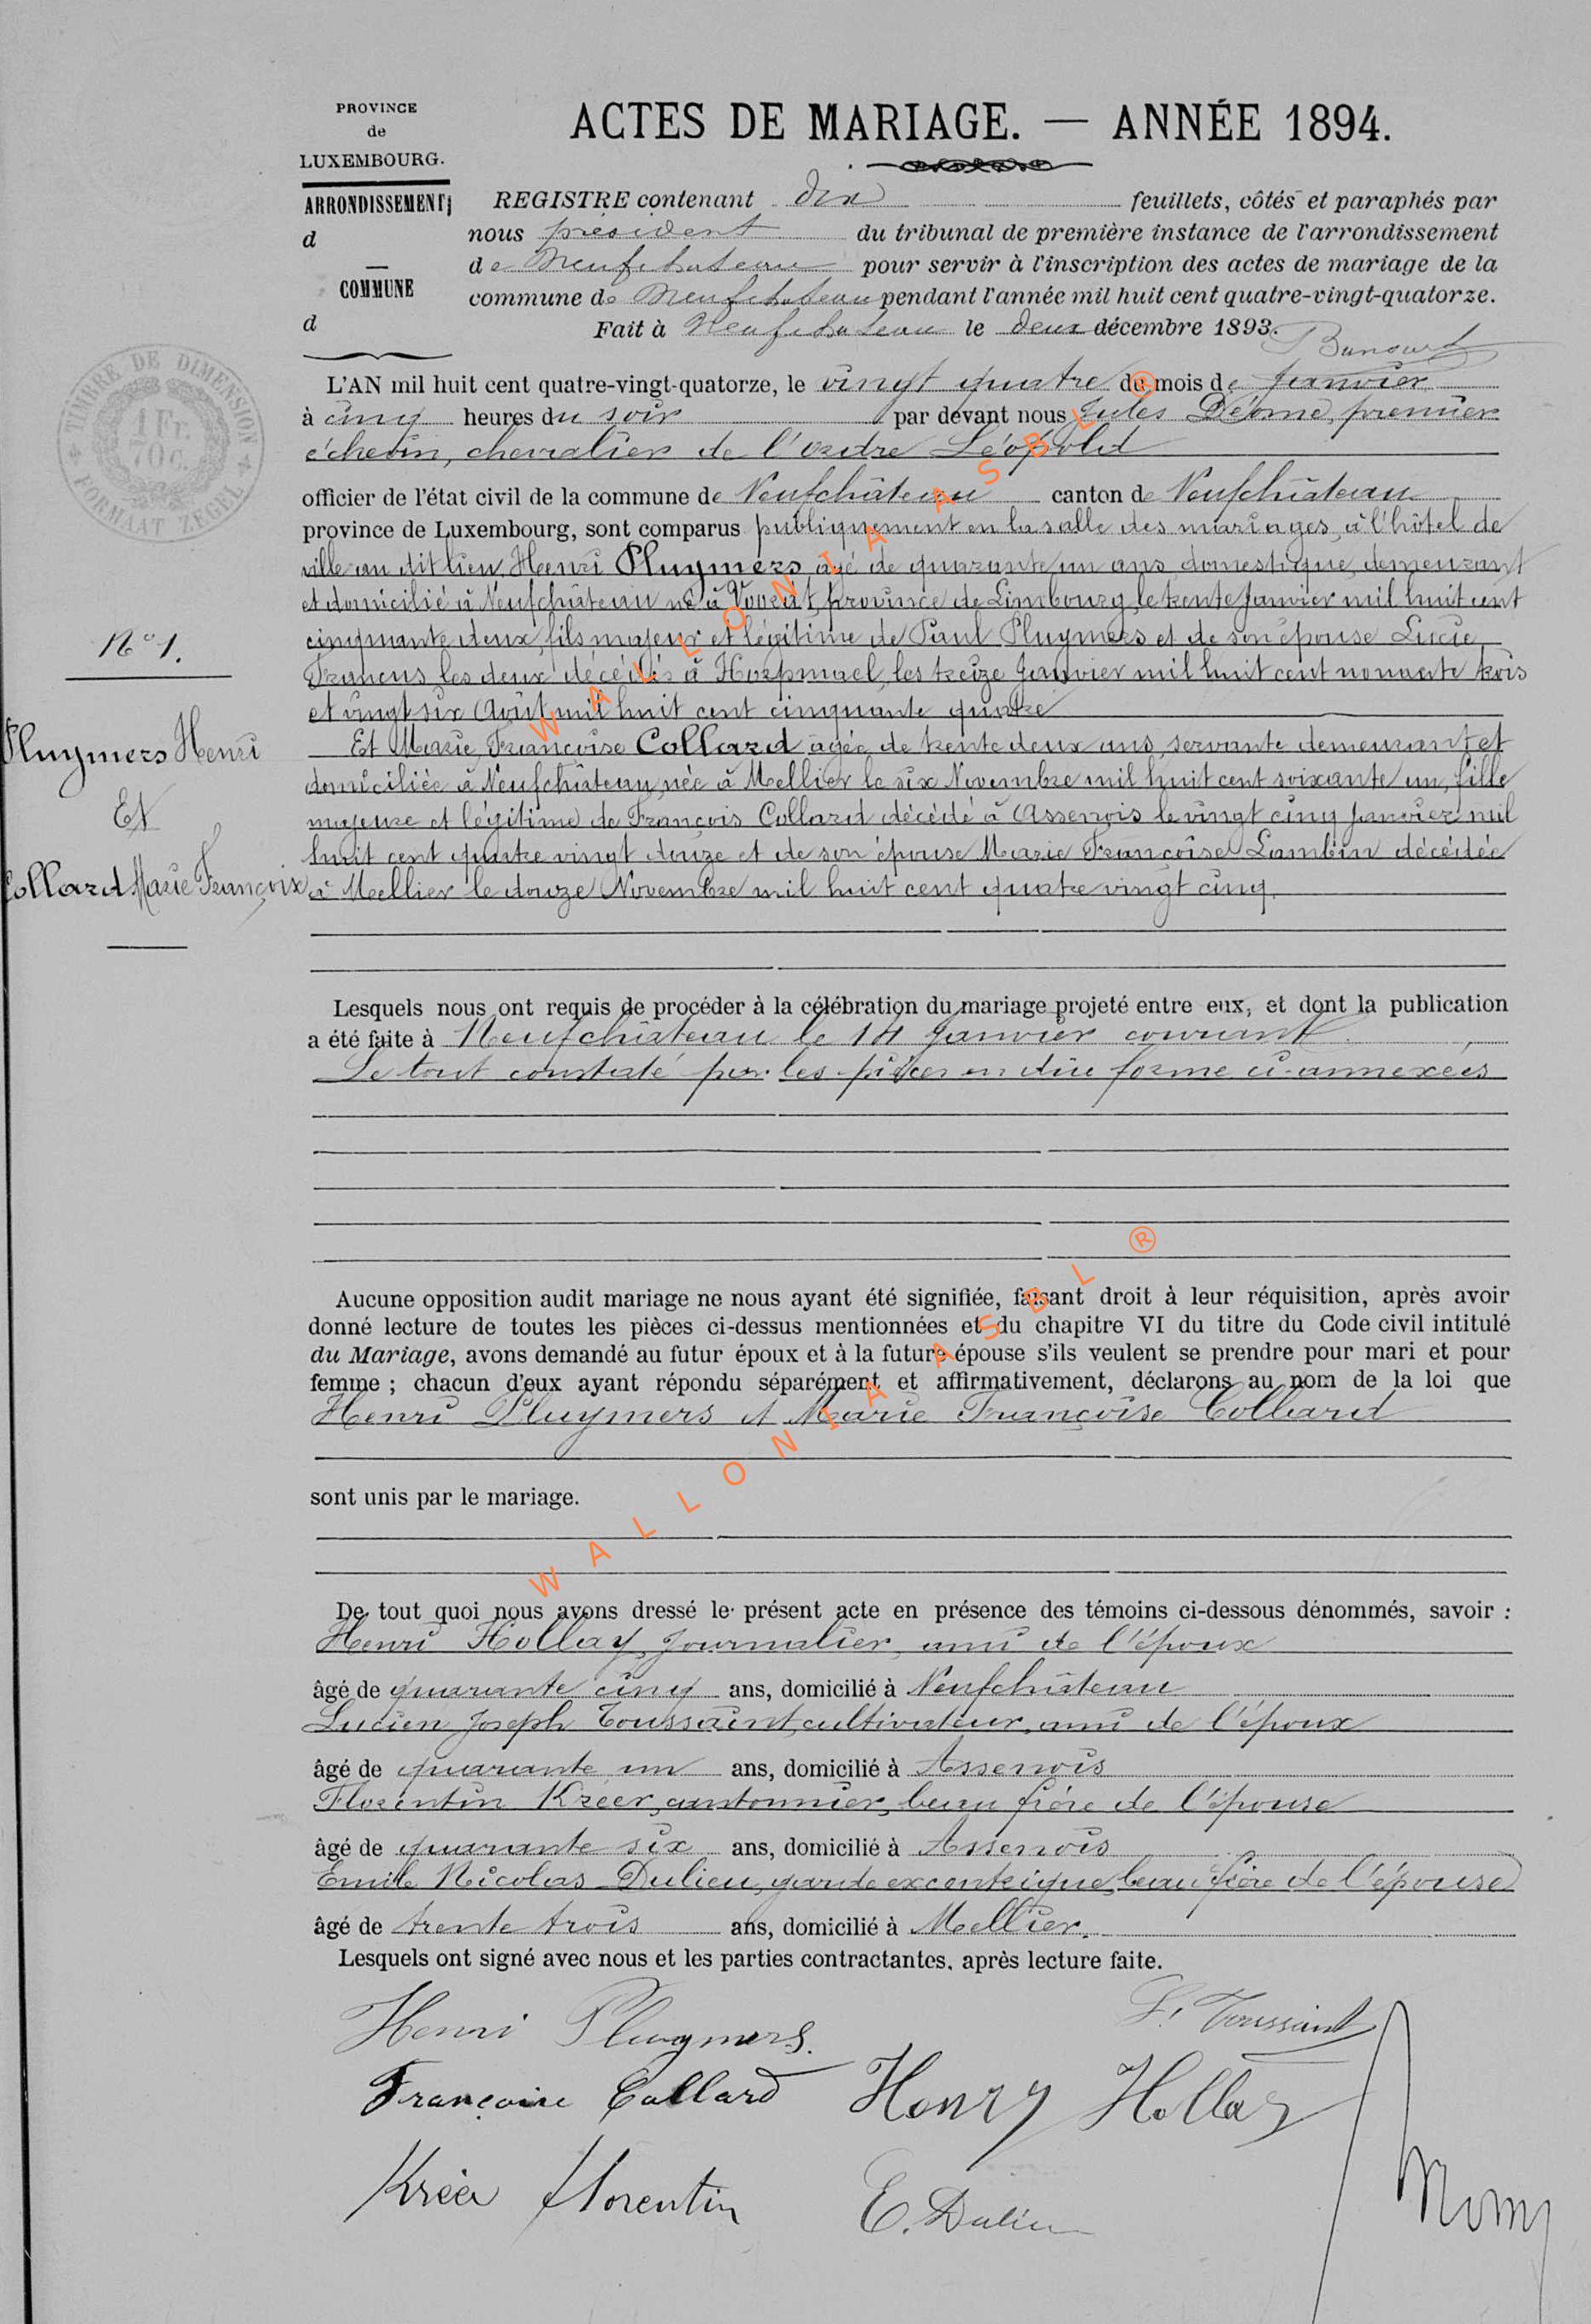 PROVINCE
de
LUXEMBOURG.
ARRONDISSEMENT
d
COMMUNE
d
ACTES DE MARIAGE. — ANNÉE 1894.
REGISTRE contenant dix feuillets, côtés et paraphés par
nous président du tribunal de première instance de l'arrondissement
de Neufchateau pour servir à l'inscription des actes de mariage de la
commune de Neufchateau pendant l'année mil huit cent quatre-vingt-quatorze.
Fait à Neufchateau le deux décembre 1893.
TIMBRE DE DIMENSION
1 Fr.
70 c.
FORMAAT ZEGEL
L'AN mil huit cent quatre-vingt-quatorze, le vingt quatre du mois de Janvier
à cinq heures du soir par devant nous Jules Déome, premier
échevin, chevalier de l'ordre Léopold
officier de l'état civil de la commune de Neufchâteau canton de Neufchâteau
province de Luxembourg, sont comparus publiquement en la salle des mariages, à l'hôtel de
ville au dit lieu, Henri Pluymers âgé de quarante un ans, domestique, demeurant
et domicilié à Neufchâteau né à province de Limbourg, le trente Janvier mil huit cent
cinquante deux, fils majeur et légitime de Paul Pluymers et de son épouse Lucie
les deux décédés à Horpmael, les treize Janvier mil huit cent nonante trois
et vingt six Août mil huit cent cinquante quatre
Et Marie Françoise Collard âgée de trente deux ans, servante demeurant et
domiciliée à Neufchâteau, née à Mellier le six Novembre mil huit cent soixante un, fille
majeure et légitime de François Collard décédé à Assenois le vingt cinq Janvier mil
huit cent quatre vingt douze et de son épouse Marie Françoise Lambin décédée
à Mellier le douze Novembre mil huit cent quatre vingt cinq.
N° 1.
Pluymers Henri
Et
Collard Marie Françoise
Lesquels nous ont requis de procéder à la célébration du mariage projeté entre eux, et dont la publication
a été faite à Neufchâteau le 14 Janvier courant.
Le tout constaté par les pièces en due forme ci-annexées
Aucune opposition audit mariage ne nous ayant été signifiée, faisant droit à leur réquisition, après avoir
donné lecture de toutes les pièces ci-dessus mentionnées et du chapitre VI du titre du Code civil intitulé
du Mariage, avons demandé au futur époux et à la future épouse s'ils veulent se prendre pour mari et pour
femme ; chacun d'eux ayant répondu séparément et affirmativement, déclarons au nom de la loi que
Henri Pluymers et Marie Françoise Collard
sont unis par le mariage.
De tout quoi nous avons dressé le présent acte en présence des témoins ci-dessous dénommés, savoir :
Henri Hollay, Journalier, ami de l'époux
âgé de quarante cinq ans, domicilié à Neufchâteau
Lucien Joseph Toussaint, cultivateur, ami de l'époux
âgé de quarante un ans, domicilié à Assenois
Florentin Kréer, cantonnier, beau frère de l'épouse
âgé de quarante six ans, domicilié à Assenois
Emile Nicolas Dulieu, garde excentrique, beau frère de l'épouse
âgé de trente trois ans, domicilié à Mellier.
Lesquels ont signé avec nous et les parties contractantes, après lecture faite.
Henri Pluymers.
L. Toussaint
Françoise Collard
Henry Hollay
Kréer Florentin
E. Dulieu
WALLONIA ASBL ®
WALLONIA ASBL ®